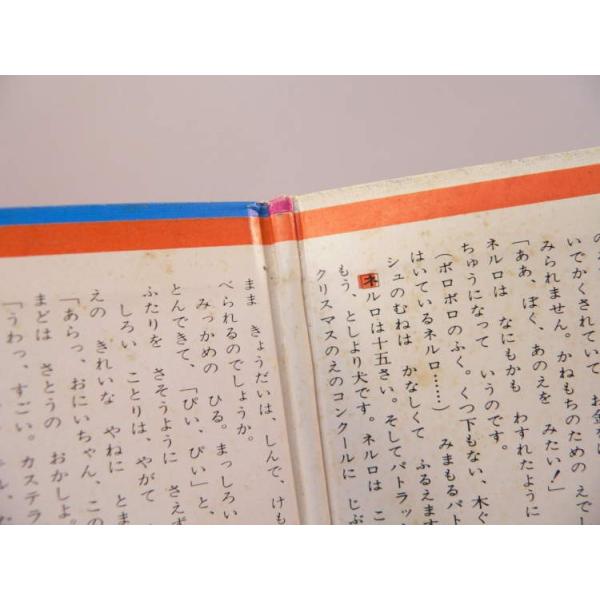 いでかくされていて お金を
みられません。かねもちのための えでし
「ああ、ぼく、あのえを みたい!」
ネルロは なにもかも わすれたように
ちゅうになって いうのです。
(ボロボロのふく。くつ下もない、木ぐ
はいているネルロ……) みまもるパト
シュのむねは かなしくて ふるえます
ネルロは十五さい。そしてパトラッ
もう、としより犬です。ネルロは こ
クリスマスのえのコンクールに じぶ
まま きょうだいは、しんで、けも
べられるのでしょうか。
みっかめの ひる。まっしろい
とんできて、「ぴい、ぴい」と、
ふたりを さそうように さえず
しろい ことりは、やがて
えの きれいな やねに とま
「あらっ、おにいちゃん、この
まどは さとうの おかしよ。
「うわっ、すごい。カステラ